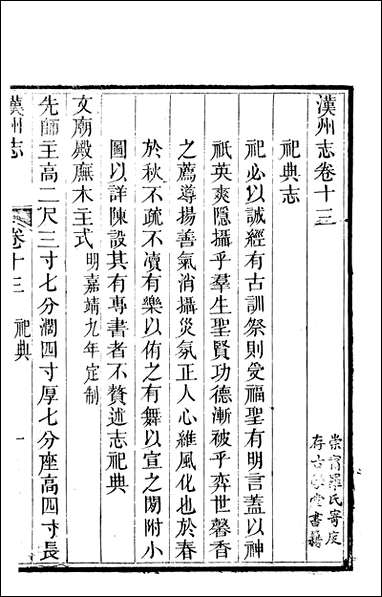 漢州志卷十三
祀典志
祀必以誠經有古訓祭則受福聖有明言蓋以神
祇英爽隱攝乎羣生聖賢功德漸被乎弈世馨香
之薦導揚善氣消攝災氛正人心維風化也於春
於秋不疏不凟有樂以侑之有舞以宣之閒附小
圖以詳陳設其有專書者不贅述志祀典
文廟殿廡木主式明嘉靖九年定制
先師主高二尺三寸七分濶四寸厚七分座高四寸長
漢州志
卷十三 祀典
一
崇甯羅氏寄友
存古學堂書籍